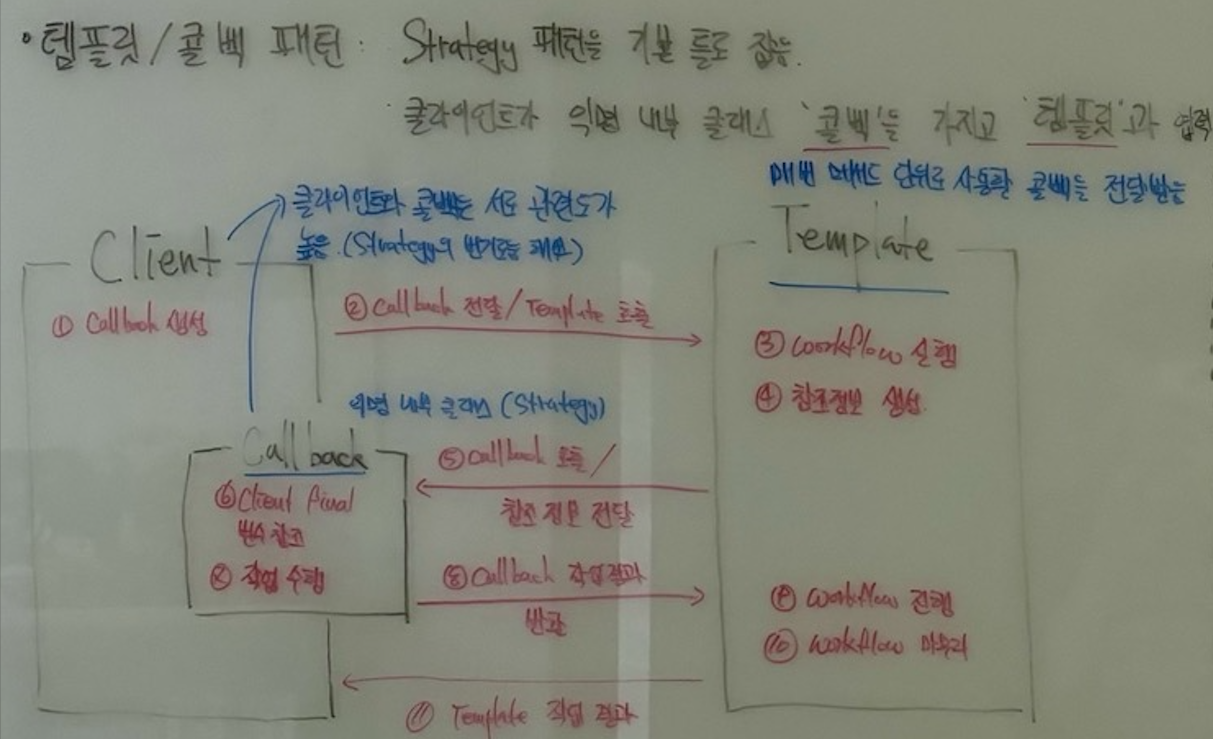 · 템플릿/콜백 패턴: Strategy 패턴을 기본 틀로 잡음.
· 클라이언트가 익명 내부 클래스 '콜백'을 가지고 '템플릿'과 협력
매번 메서드 단위로 사용할 콜백을 전달받음
클라이언트와 콜백는 서로 관련도가
높음. (Strategy의
Client
Template
① Callback 생성
② Callback 전달/Template 호출
③ Workflow 실행
④ 참조정보 생성.
익명 내부 클래스 (Strategy)
Callback
⑤ Callback 호출/
참조정보 전달
⑥ Client final
변수 참조
작업 수행
⑧ Callback 작업결과
반환
⑨ Workflow 진행
⑩ Workflow 마무리
⑪ Template 작업 결과